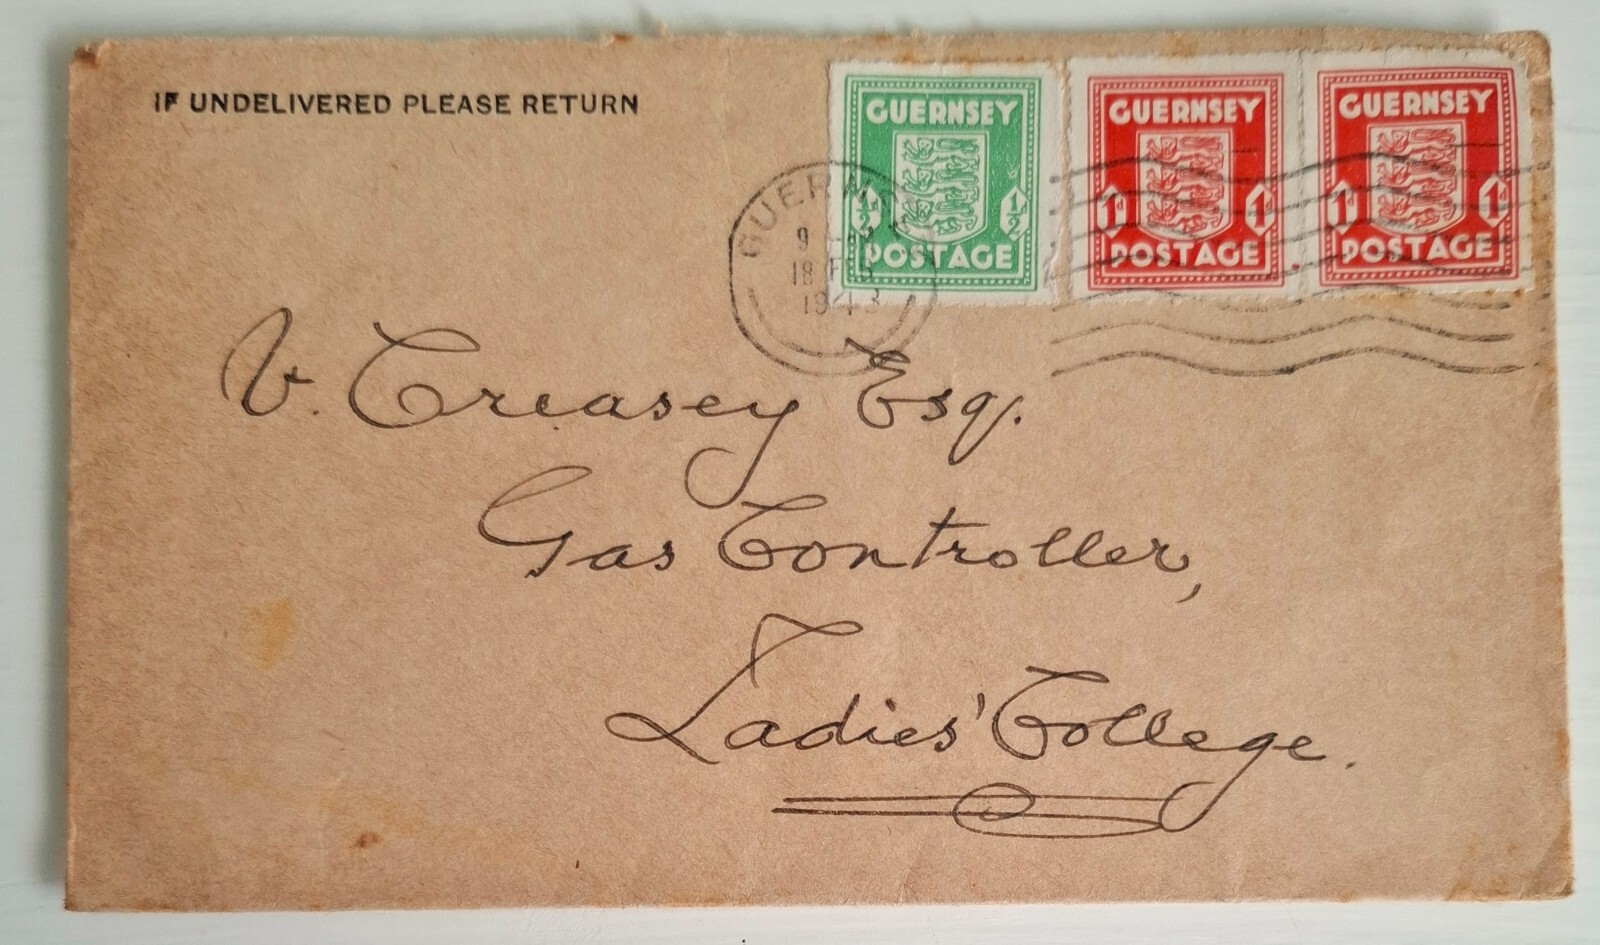 IF UNDELIVERED PLEASE RETURN
GUERNSEY
½ ½
POSTAGE
GUERNSEY
1d 1d
POSTAGE
GUERNSEY
1d 1d
POSTAGE
GUERNSEY
18 FEB
1943
V. Creasey Esq.
Gas Controller,
Ladies' College.